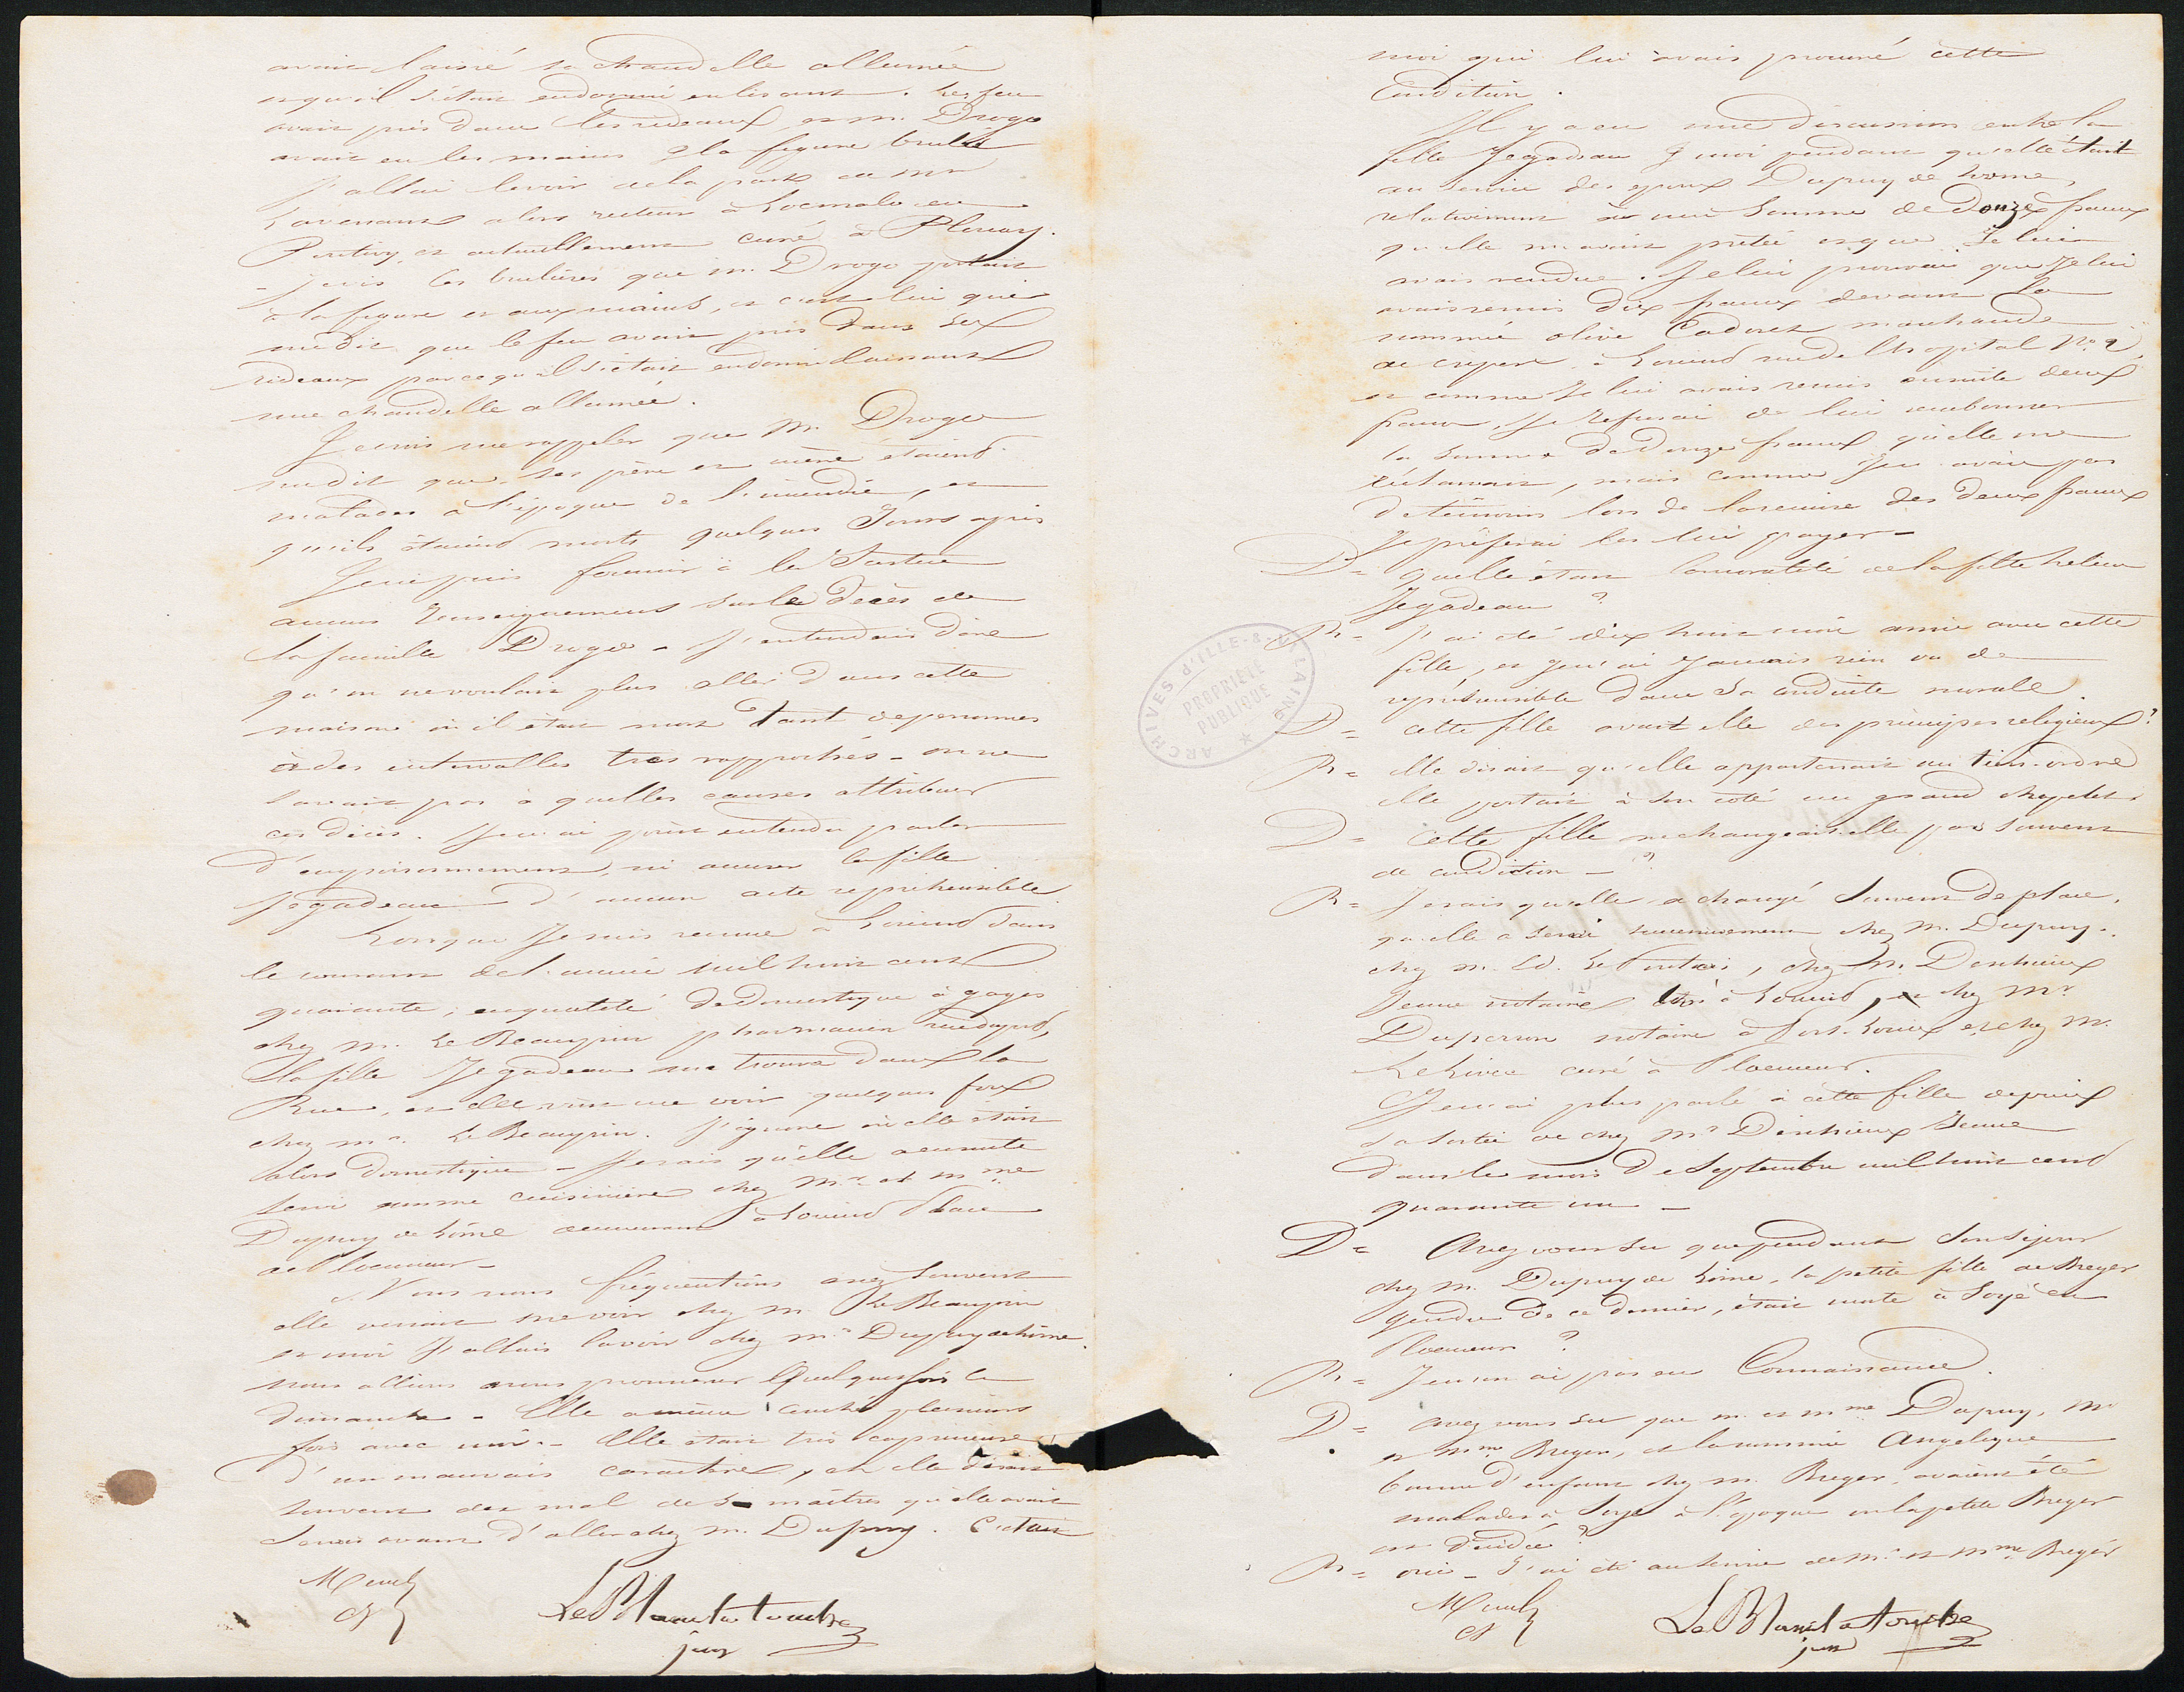 avait laissé sa chandelle allumée
et qu'il s'était endormi en lisant. Le feu
avait pris dans les rideaux, et m. Drogo
avait eu les mains & la figure brulée
J'allai le voir de la part de mr
Lavenant alors recteur à Locmalo en
Pontivy, et actuellement curé à Plouay.
Je vis les brulures que m. Drogo portait
à la figure et aux mains, et c'est lui qui
me dit que le feu avait pris dans ses
rideaux parce qu'il s'était endormi laissant
une chandelle allumée.
Je crois me rappeler que M. Drogo
me dit que ses père et mère étaient
malades à l'époque de l'incendie, et
qu'ils étaient morts quelques Jours après
Je ne puis fournir à la Justice
aucuns renseignements sur le décès de
la famille Drogo - J'entendais dire
qu'on ne voulait plus aller dans cette
maison où il était mort tant de personnes
à des intervalles très rapprochés - on ne
savait pas à quelles causes attribuer
ces décès. Je n'ai point entendu parler
d'empoisonnement, ni accuser la fille
Jegadeau d'aucun acte repréhensible
Lorsque Je suis venue à Lorient dans
le courant de l'année mil huit cent
quarante, en qualité de domestique à gages
chez m. Le Beaupin pharmacien
la fille Jegadeau me trouva dans la
Rue, et elle vint me voir quelques fois
chez mr. Le Beaupin. J'ignore où elle était
alors domestique - Je sais qu'elle a ensuite
servi comme cuisinière chez Mr. et Mme
Dupuy de Lôme demeurant à Lorient Place
de Ploemeur -
Nous nous fréquentions assez souvent
elle venait me voir chez m. Le Beaupin
et moi J'allais la voir chez mr. Dupuy de Lôme.
nous allions nous promener Quelques fois le
dimanche - Elle a même couché plusieurs
fois avec moi - Elle était très capricieuse
d'un mauvais caractère, et elle disait
souvent du mal de maîtres qu'elle avait
servis avant d'aller chez m. Dupuy. C'était
Le Blanc la touche
juge
moi qui lui avais procuré cette
Condition.
Il y a eu une discussion entre la
fille Jegadeau & moi pendant qu'elle était
au service des epoux Dupuy de Lôme,
relativement à une somme de Douze francs
qu'elle m'avait prêtée et que Je lui
avais rendue. Je lui prouvai que Je lui
avais remis dix francs devant la
nommée olive Cadoret marchande
de crêpes, à Lorient rue de l'hopital No 9,
et comme Je lui avais remis ensuite deux
francs, Je refusai de lui rembourser
la somme de Douze francs qu'elle me
réclamait, mais comme Je n'avais pas
de témoins lors de la remise des deux francs
Je préférai les lui payer -
D = quelle était la moralité de la fille helene
Jegadeau ?
R = J'ai été dix huit mois amie avec cette
fille, et Je n'ai Jamais rien vu de
repréhensible dans sa conduite morale.
D = cette fille avait elle des principes religieux ?
R = elle disait qu'elle appartenait au tiers-ordre
elle portait à son coté un grand chapelet
D = cette fille ne changeait elle pas souvent
de condition - ?
R = Je sais qu'elle a changé souvent de place,
qu'elle a servi successivement chez M. Dupuy,
chez m. , chez M. Denhieux
Jeune notaire à Lorient, et chez Mr.
Duperron notaire à Port-Louis et chez M.
Le Livec curé à Ploemeur.
Je n'ai plus parlé à cette fille depuis
sa sortie de chez Mr Denhieux Jeune
dans le mois de Septembre mil huit cent
quarante un -
D = Avez vous su que pendant son séjour
chez M. Dupuy de Lôme, la petite fille de Breger
gendre de ce dernier, était morte à Soyé en
Ploemeur ?
R = Je n'en ai pas eu Connaissance.
D = avez vous su que m. et mme Dupuy, Mr
et Mme Breger, et la nommée Angelique
bonne d'enfant chez m. Breger, avaient été
malades à Soyé à l'époque où la petite Breger
est décédée ?
R = oui - J'ai été au service de Mr et Mme Breger
Le Blanc la touche
juge
ARCHIVES D'ILLE-&-VILAINE
PROPRIÉTÉ
PUBLIQUE